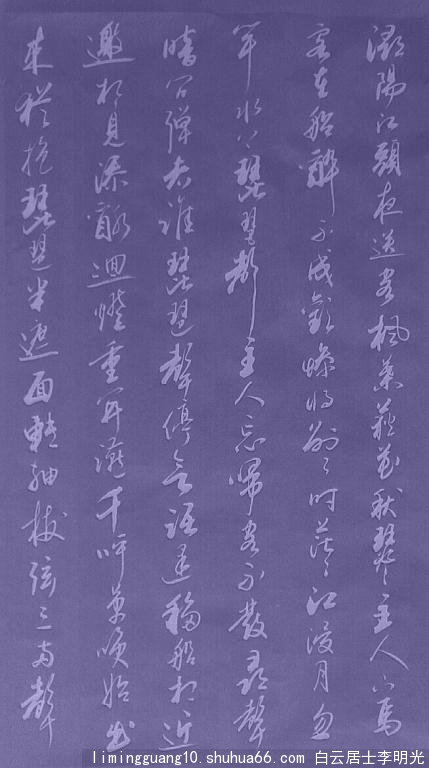 潯陽江頭夜送客楓葉荻花秋瑟々主人下馬
客在船醉不成歡慘將別々時茫々江浸月忽
聞水上琵琶聲主人忘歸客不發尋聲
暗問彈者誰琵琶聲停欲語遲移船相近
邀相見添酒迴燈重開讌千呼萬喚始出
來猶抱琵琶半遮面轉軸撥弦三兩聲
limingguang10.shuhua66.com 白云居士李明光